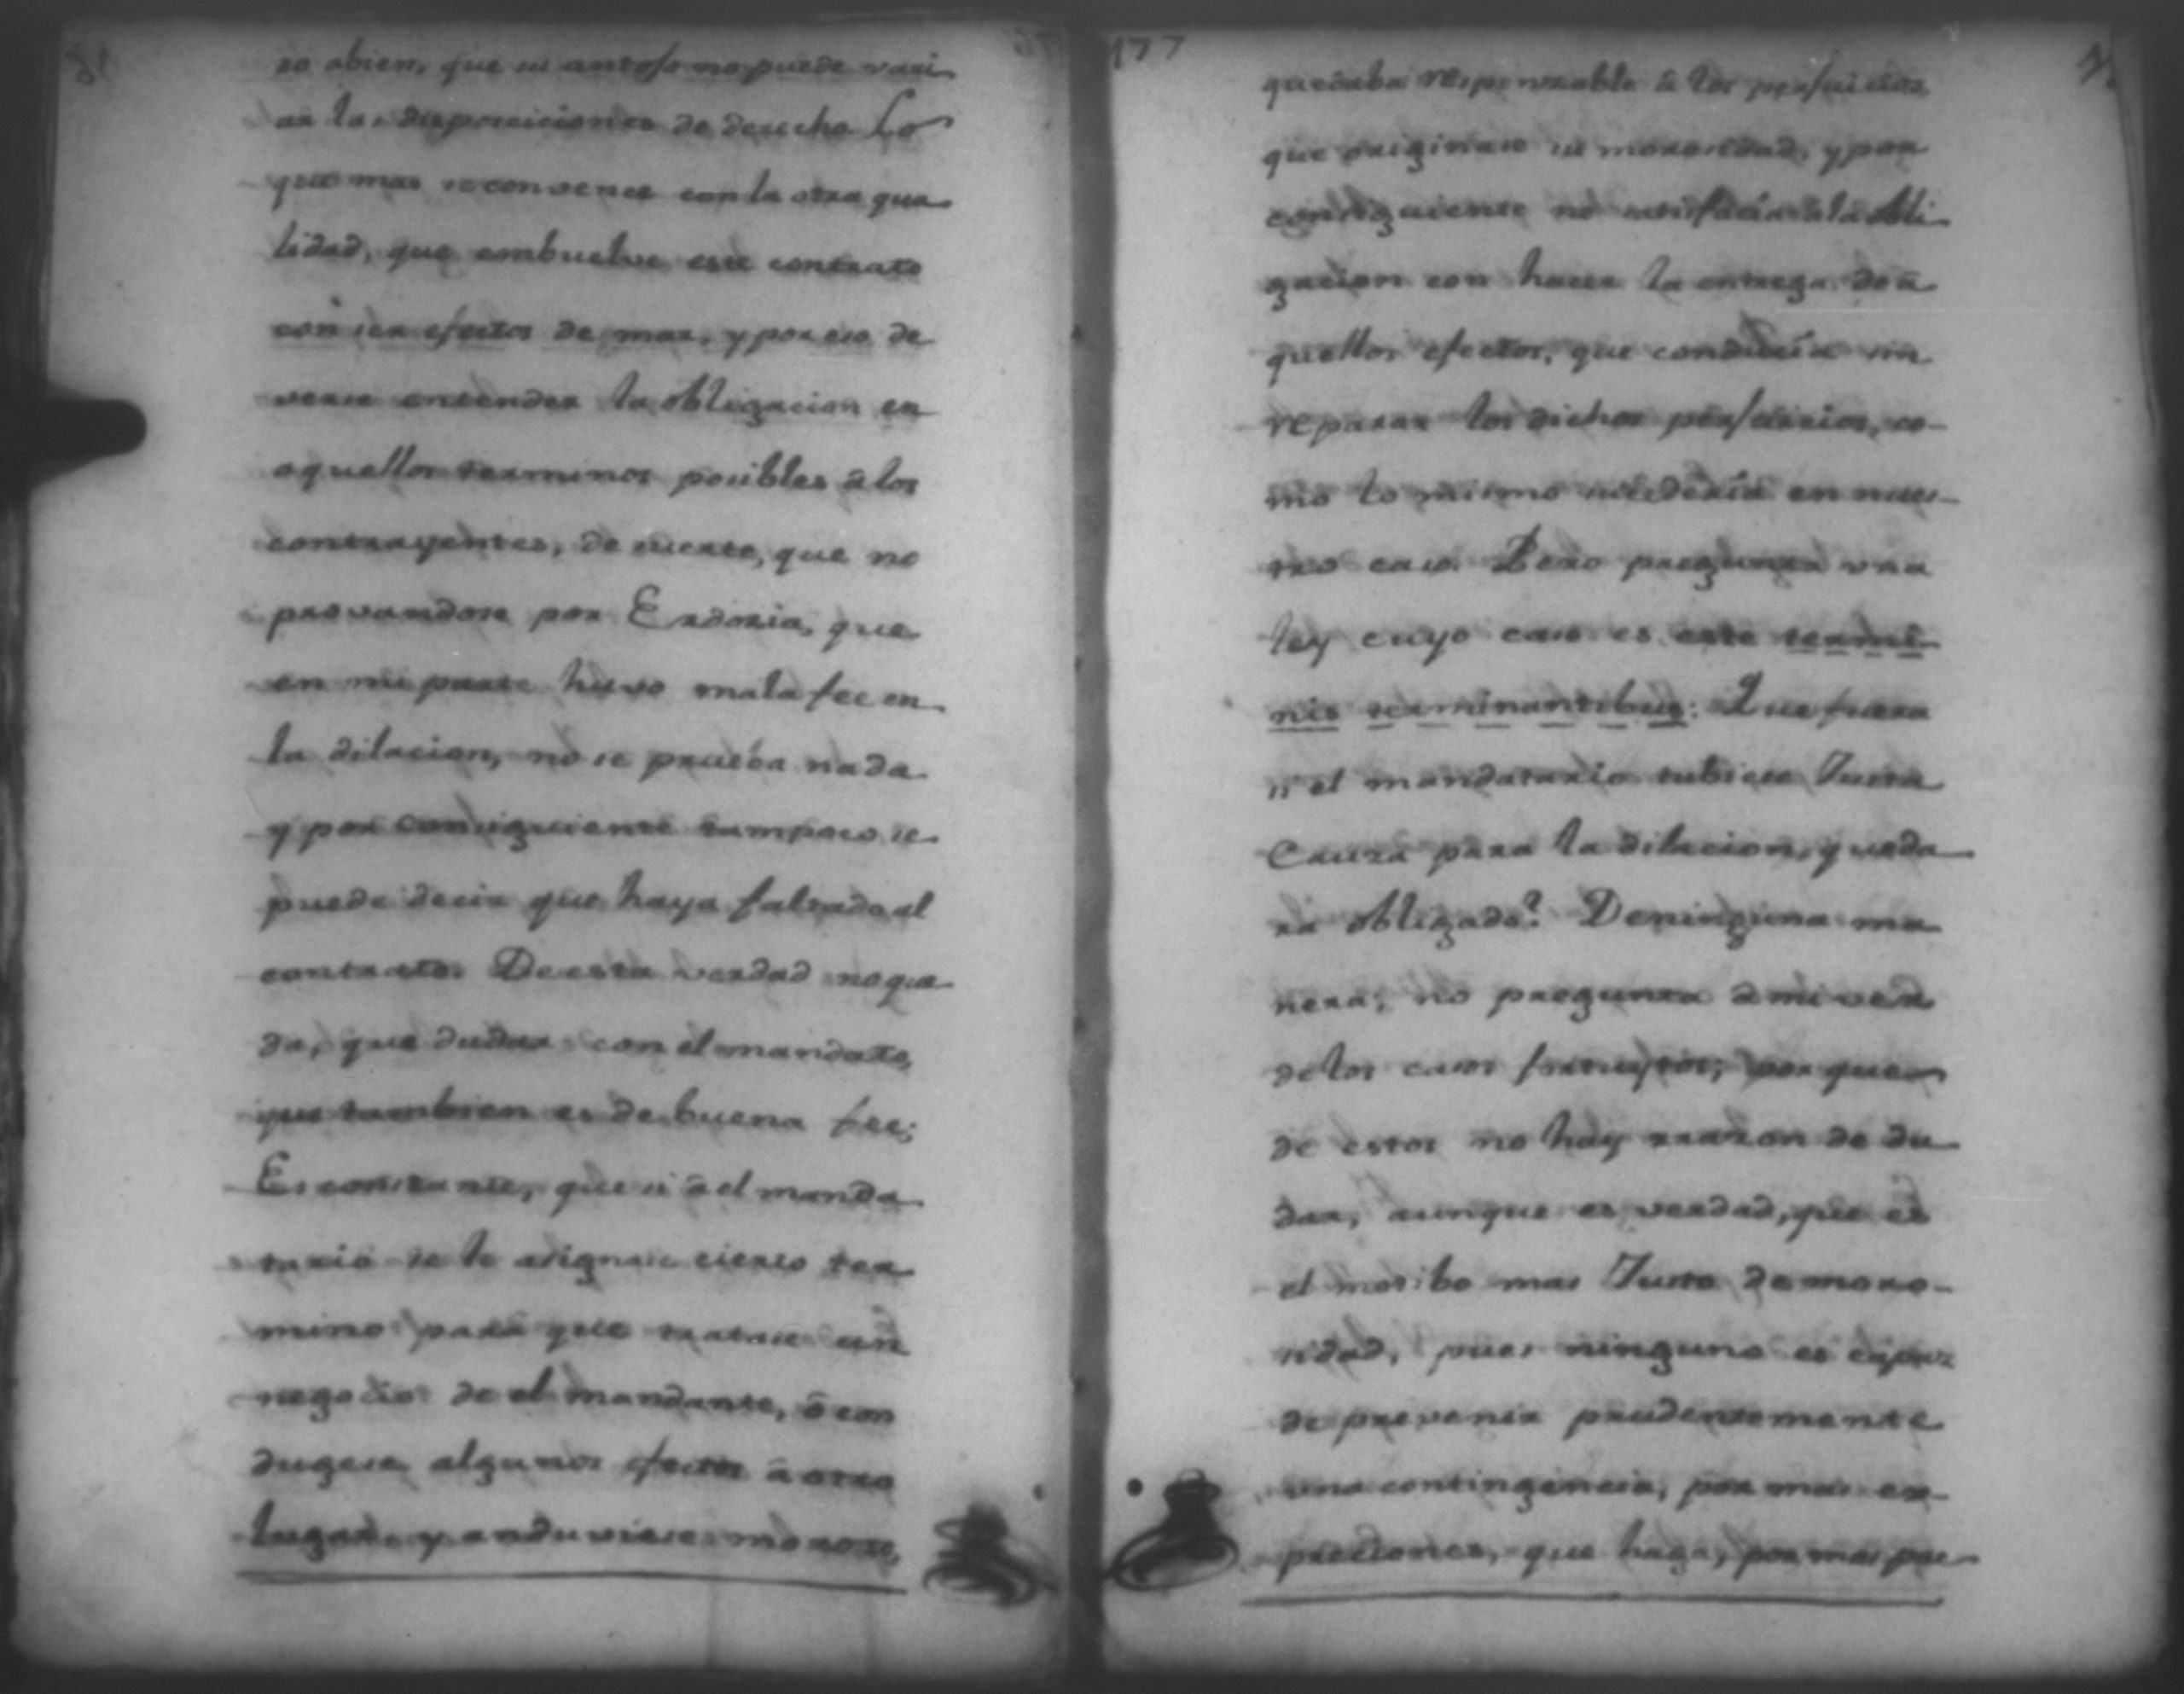 ro abien, que su antojo no puede vari
ar las disposiciones de derecho Lo
que mas se convence con la otra qua
lidad, que embuelve este contrato
con ser efectos de mar, y por eso de
verse entender la obligacion en
aquellos terminos posibles a los
contrayentes, de suerte, que no
provandose por Erdoria, que
en mi parte huvo mala fee en
la dilacion, no se prueba nada
y por consiguiente tampoco se
puede decir que haya faltado al
contrato. De esta verdad no que
da, que dudar con el mandato,
que tambien es de buena fee;
Es constante, que si â el manda
tario se le asignase cierto ter
mino para que tratase un
negocio de el mandante, ô con
dugese algunos efectos â otro
lugar, y anduviese moroso,
177
quedaba responsable â los perjuicios
que originase su morosidad, y por
consiguiente no satisfacía a la obli
gacion con hacer la entrega de â
quellos efectos, que conducía sin
reparar los dichos perjuicios, co-
mo lo mismo sucedería en nues-
tro caso. Pero pregunta una
ley cuyo caso es este termi
nis terminantibus: Que fuera
si el mandatario tubiese Justa
Causa para la dilacion, queda
ra obligado? De ninguna ma
nera; no pregunta a mi ver
de los casos fortuytos; porque
de estos no hay razon de du
dar, aunque es verdad, que es
el motibo mas Justo de moro-
sidad, pues ninguno es capaz
de prevenir prudentemente
una contingencia, por mas ex-
preciones, que haga, por mas pre